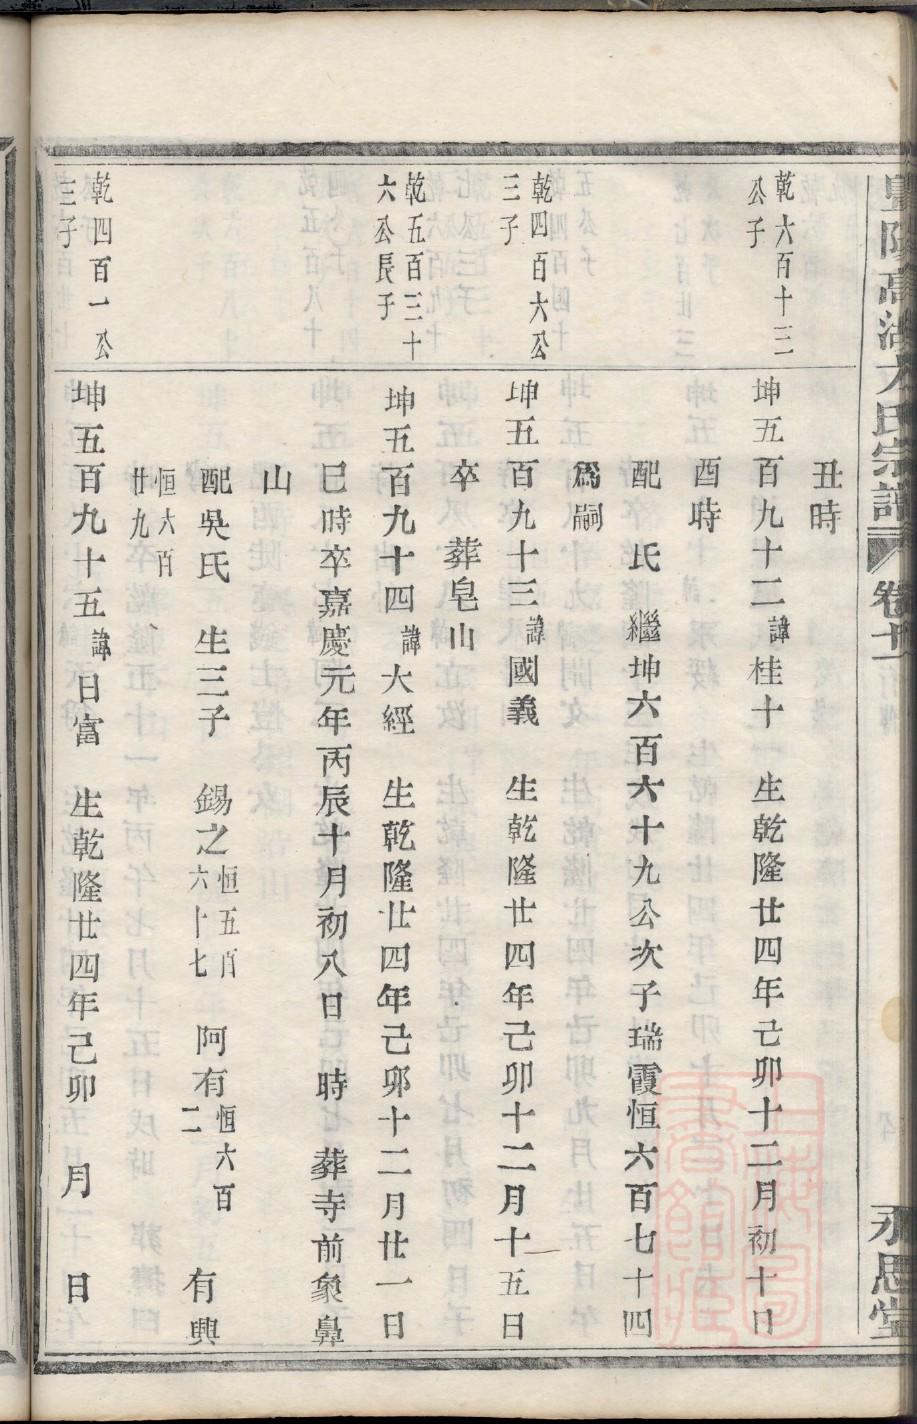 豐陵高湖方氏宗譜 卷十一 永思堂
丑時
乾六百十三
公子
坤五百九十二諱桂十 生乾隆廿四年己卯十二月初十日
酉時
配 氏 繼坤六百六十九公次子瑞霞恒六百七十四
爲嗣
乾四百六公
三子
坤五百九十三諱國義 生乾隆廿四年己卯十二月十五日
卒 葬皂山
乾五百三十
六公長子
坤五百九十四諱大經 生乾隆廿四年己卯十二月廿一日
巳時卒嘉慶元年丙辰十月初八日 時 葬寺前象鼻
山
配吳氏 生三子 錫之恒五百六十七 阿有恒六百二 有興
恒六百
廿九
乾四百一公
三子
坤五百九十五諱日富 生乾隆廿四年己卯 月 日